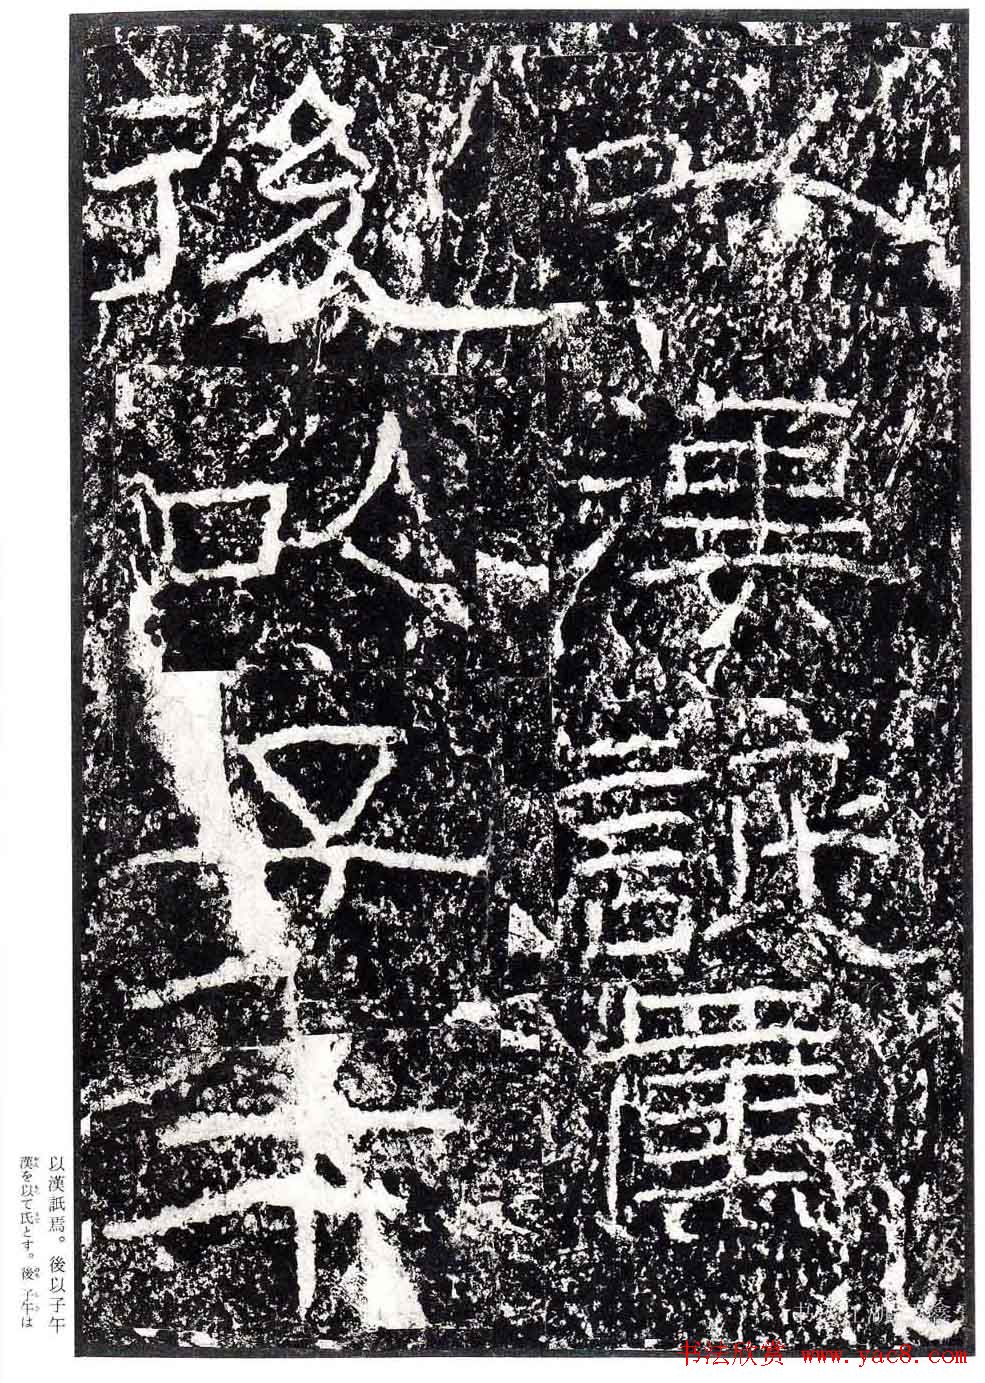 以漢詆焉
後以子午
以漢詆焉。後以子午
漢を以て氏とす。後 子午は
书法欣赏 www.yac8.com